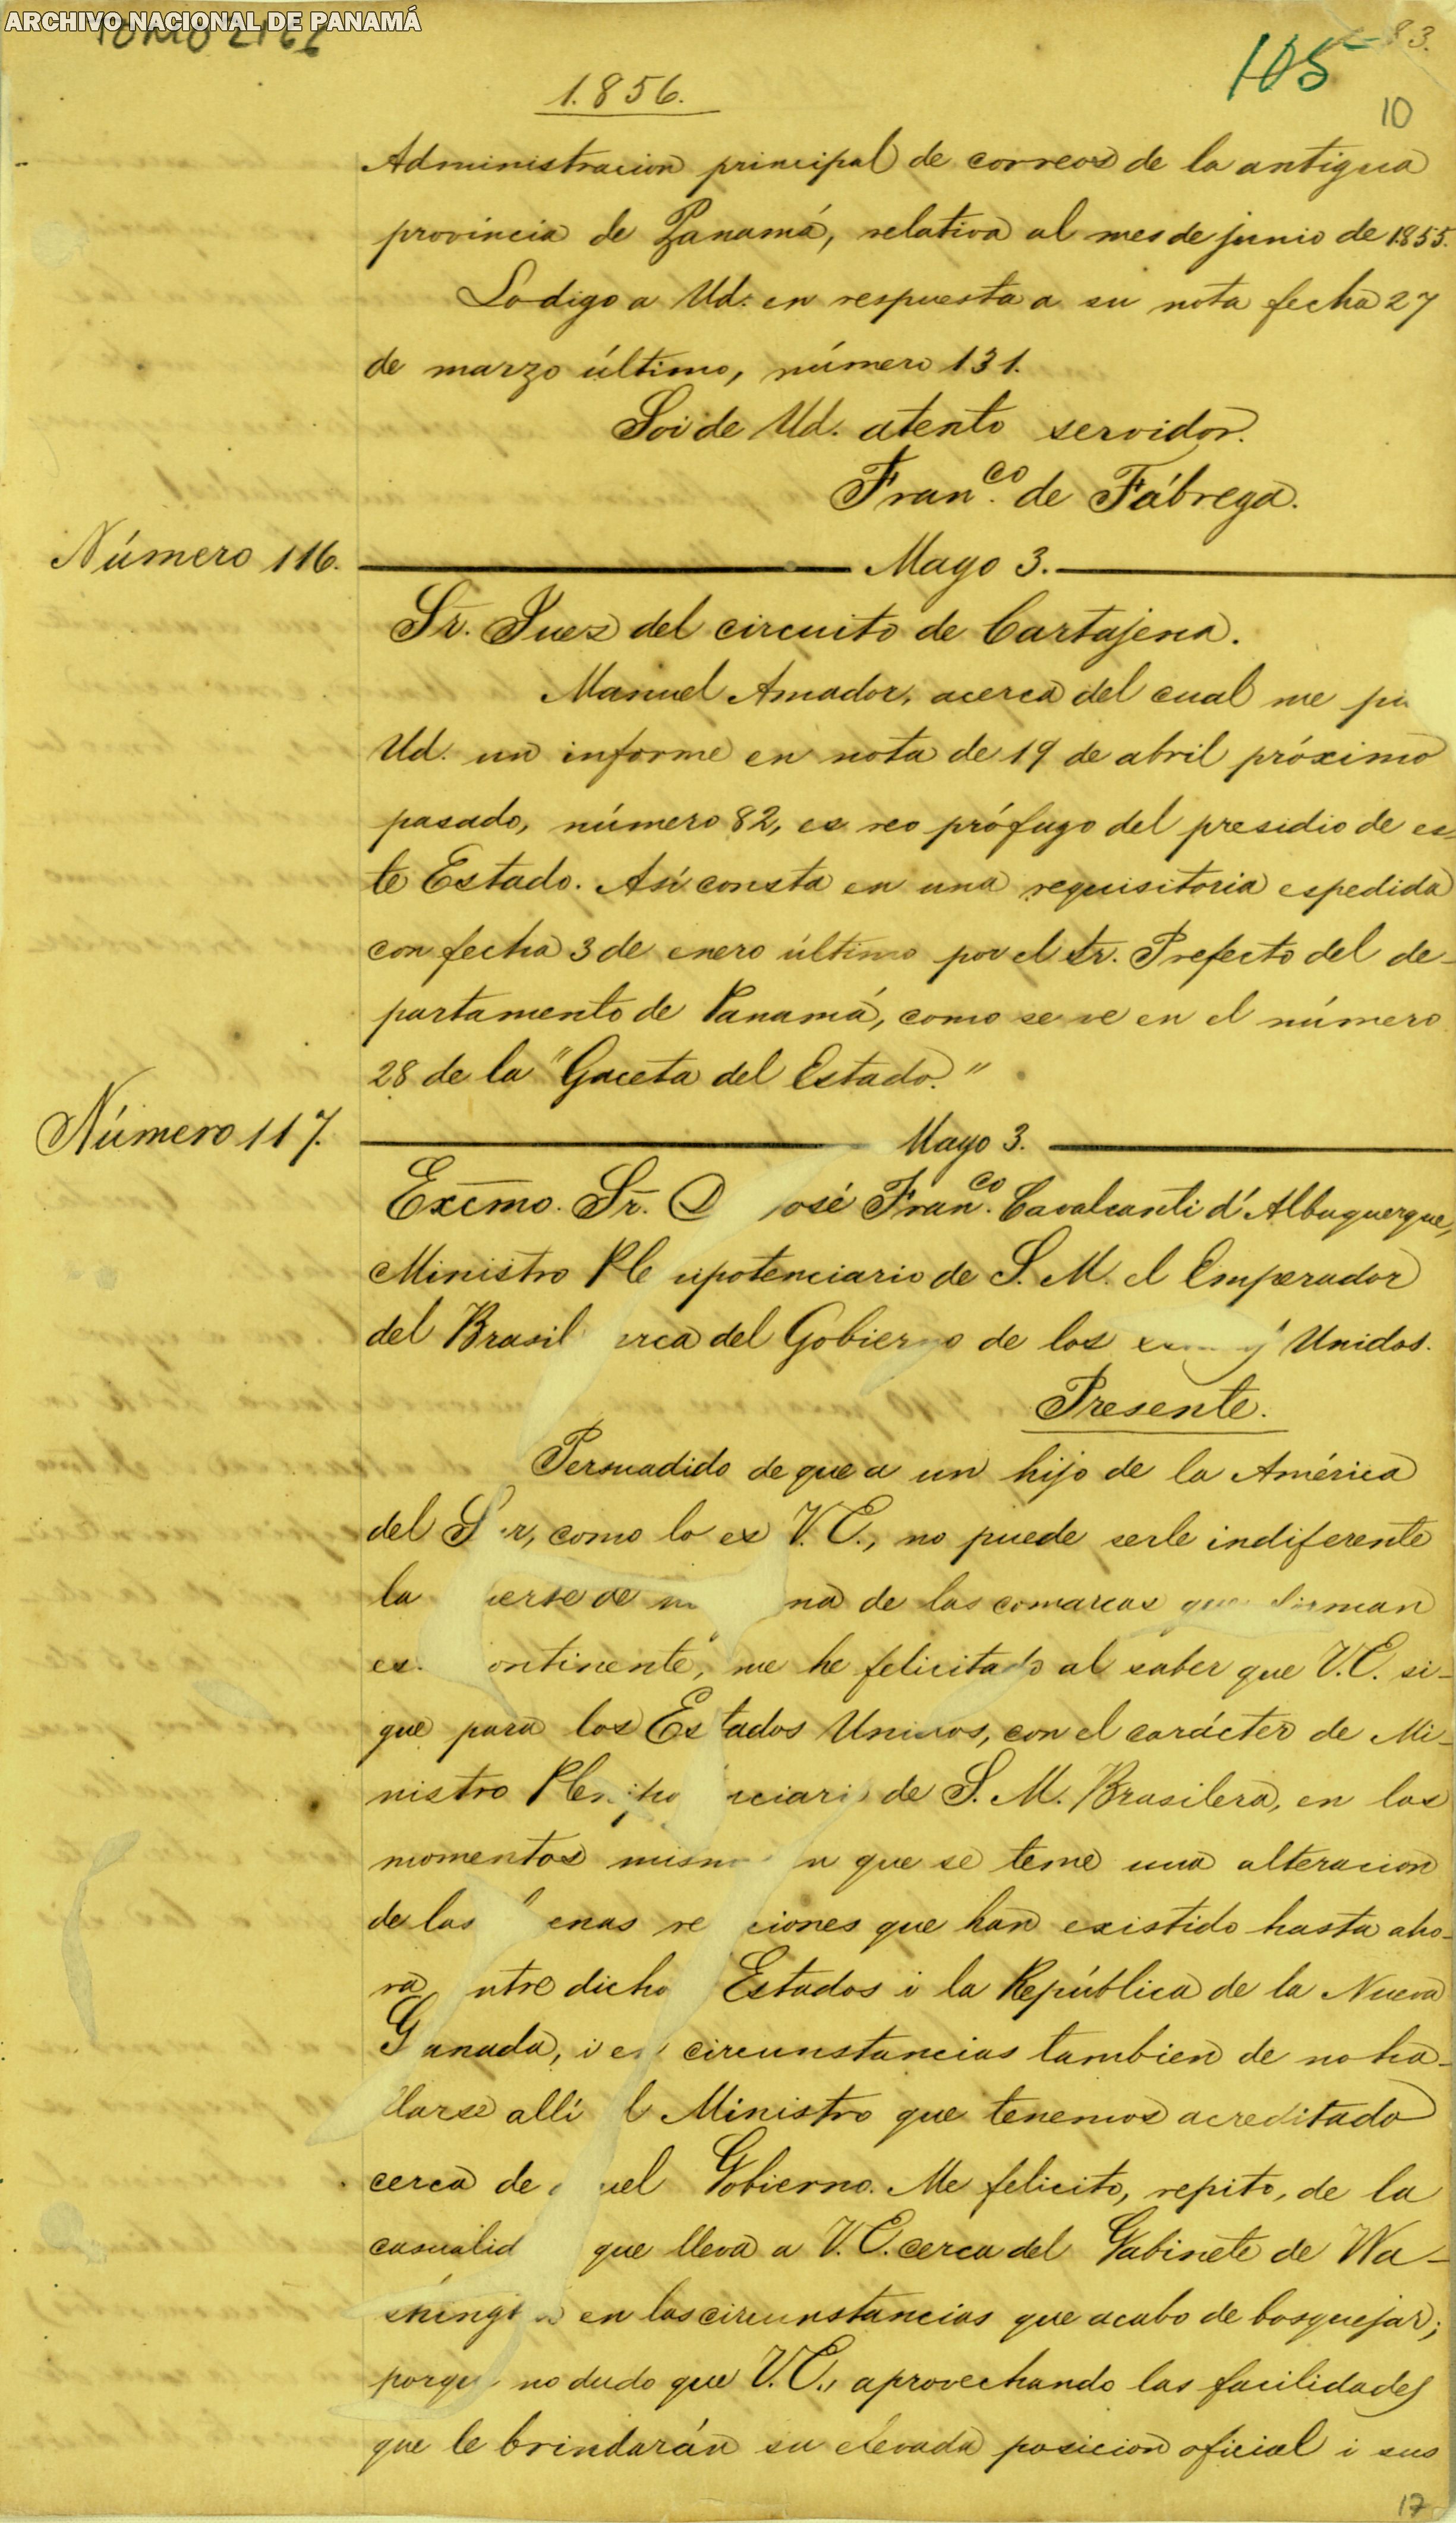 ARCHIVO NACIONAL DE PANAMÁ
TOMO 2166
83.
105
10
1.856.
Administracion principal de correos de la antigua
provincia de Panamá, relativa al mes de junio de 1855.
Lo digo a Ud. en respuesta a su nota fecha 27
de marzo último, número 131.
Soi de Ud. atento servidor.
Fran.co de Fábrega.
Número 116.
Mayo 3.
Sr. Juez del circuito de Cartajena.
Manuel Amador, acerca del cual me
Ud. un informe en nota de 19 de abril próximo
pasado, número 82, es reo prófugo del presidio de es-
te Estado. Así consta en una requisitoria espedida
con fecha 3 de enero último por el Sr. Prefecto del de-
partamento de Panamá, como se ve en el número
28 de la "Gaceta del Estado."
Número 117.
Mayo 3.
Excmo. Sr. D José Fran.co Cavalcanti d'Albuquerque,
Ministro Ple nipotenciario de S. M. el Emperador
del Brasil erca del Gobierno de los Unidos.
Presente.
Persuadido de que a un hijo de la América
del S r, como lo es V. E., no puede serle indiferente
la de na de las comarcas que forman
es ontinente, me he felicitado al saber que V. E. si-
gue para los Estados Unidos, con el carácter de Mi-
nistro Plenipo nciario de S. M. Brasilera, en los
momentos mismo n que se teme una alteracion
de las enas re ciones que han existido hasta aho-
ra ntre dicho Estados i la República de la Nueva
G anada, i en circunstancias tambien de no ha-
llarse allí l Ministro que tenemos acreditado
cerca de uel Gobierno. Me felicito, repito, de la
casualid que lleva a V. E. cerca del Gabinete de Wa-
shington en las circunstancias que acabo de bosquejar;
porque no dudo que V. E., aprovechando las facilidades
que le brindarán su elevada posicion oficial i sus
17